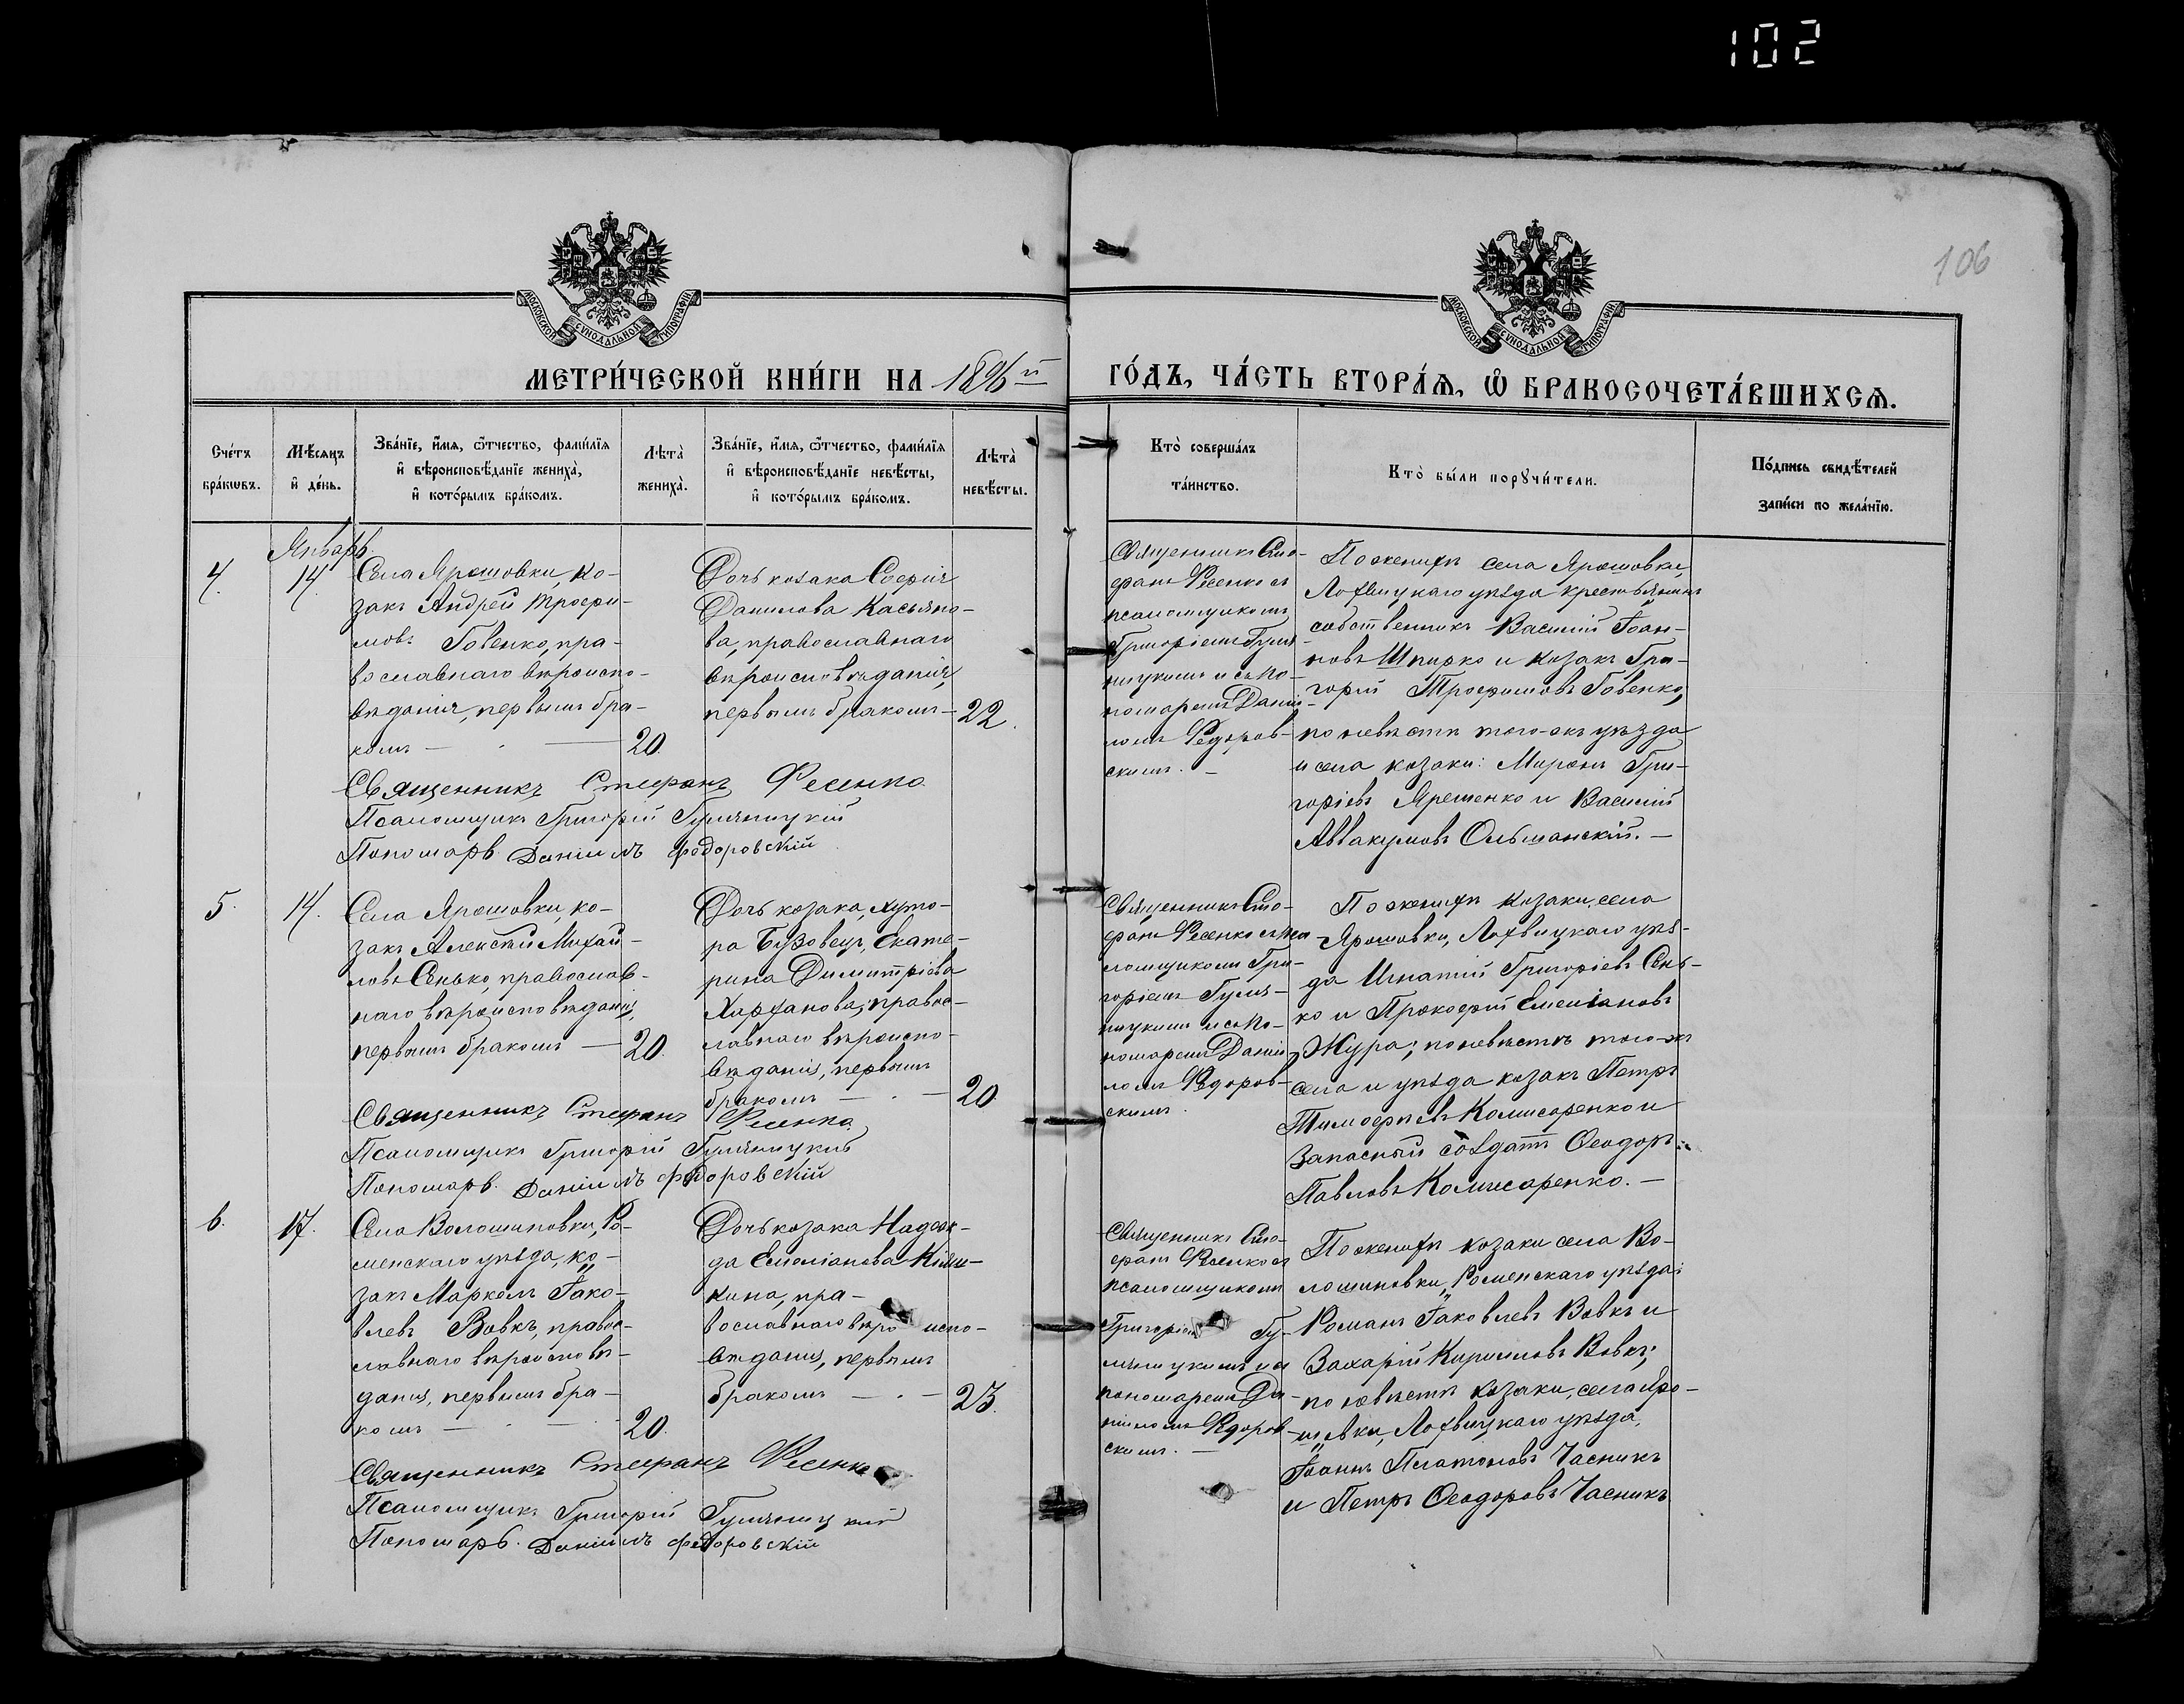 102
106
МОСКОВСКОЙ СѴНОДАЛЬНОЙ ТИПОГРАФІИ
МОСКОВСКОЙ СѴНОДАЛЬНОЙ ТИПОГРАФІИ
МЕТРИ́ЧЕСКОЙ КНИ́ГИ НА 1896й ГО́ДЪ, ЧА́СТЬ ВТОРА́Ѧ, Ѡ҆ БРАКОСОЧЕТА́ВШИХСѦ.
Сче́тъ бра́кѡвъ.
Мѣ́сѧцъ и҆ де́нь.
Зва́нїе, и҆́мѧ, ѻ҆́тчество, фами́лїѧ
и҆ вѣроисповѣ́данїе жениха̀,
и҆ кото́рымъ бра́комъ.
Лѣта̀ жениха̀.
Зва́нїе, и҆́мѧ, ѻ҆́тчество, фами́лїѧ
и҆ вѣроисповѣ́данїе невѣ́сты,
и҆ кото́рымъ бра́комъ.
Лѣта̀ невѣ́сты.
Кто̀ соверша́лъ та́инство.
Кто̀ бы́ли порꙋчи́тели.
По́дпись свидѣ́телей
за́писи по жела́нїю.
Январь.
4.
14.
Села Ярошовки, ко-
закъ Андрей Трофи-
мовъ Говенко, пра-
вославнаго вѣроиспо-
вѣданія, первымъ бра-
комъ —
20.
Дочь козака Софія
Данилова Касьяно-
ва, православнаго
вѣроисповѣданія,
первымъ бракомъ —
22.
Священникъ Сте-
фанъ Фесенко съ
псаломщикомъ
Григоріемъ Гуля-
ницкимъ и съ по-
номаремъ Даніи-
ломъ Федоров-
скимъ. —
По женихѣ села Ярошовки,
Лохвицкаго уѣзда крестьянинъ
собственникъ Василій Іоан-
новъ Шпирко и козакъ Гри-
горій Трофимовъ Говенко,
по невѣстѣ того-жъ уѣзда
и села козаки: Миронъ Гри-
горіевъ Ярешенко и Василій
Аввакумовъ Ольшанскій. —
Священникъ Стефанъ Фесенко
Псаломщикъ Григорій Гуляницкій
Пономарь Даніилъ Федоровскій
5.
14.
Села Ярошовки, ко-
закъ Алексѣй Михай-
ловъ Сенько, православ-
наго вѣроисповѣданія,
первымъ бракомъ —
20.
Дочь козака, хуто-
ра Бузовецъ, Екате-
рина Димитріева
Харханова, правос-
лавнаго вѣроиспо-
вѣданія, первымъ
бракомъ —
20
Священникъ Сте-
фанъ Фесенко съ пса-
ломщикомъ Гри-
горіемъ Гуля-
ницкимъ и съ по-
номаремъ Даніи-
ломъ Федоров-
скимъ.
По женихѣ козаки, села
Ярошовки, Лохвицкаго уѣз-
да Игнатій Григоріевъ Сень-
ко и Прокофій Емеліановъ
Жура; по невѣстѣ того-жъ
села и уѣзда козакъ Петръ
Тимофѣевъ Комисаренко и
Запасный солдатъ Ѳеодоръ
Павловъ Комисаренко. —
Священникъ Стефанъ Фесенко
Псаломщикъ Григорій Гуляницкій
Пономарь Даніилъ Федоровскій
6.
17.
Села Волошиновки, Ро-
менскаго уѣзда, ко-
закъ Маркелъ Іако-
влевъ Вовкъ, правос-
лавнаго вѣроисповѣ-
данія, первымъ бра-
комъ —
20.
Дочь козака Надеж-
да Емеліанова
кина, пра-
вославнаго вѣро испо-
вѣданія, первымъ
бракомъ —
23.
Священникъ Сте-
фанъ Фесенко съ
псаломщикомъ
Григоріемъ Гу-
ляницкимъ и съ
пономаремъ Да-
ніиломъ Федоров-
скимъ. —
По женихѣ козаки села Во-
лошиновки, Роменскаго уѣзда:
Романъ Іаковлевъ Вовкъ и
Захарій Кириловъ Вовкъ;
по невѣстѣ козаки, села Яро-
шовки, Лохвицкаго уѣзда,
Іоаннъ Платоновъ Часникъ
и Петръ Ѳеодоровъ Часникъ
Священникъ Стефанъ Фесенко
Псаломщикъ Григорій Гуляницкій
Пономарь Даніилъ Федоровскій